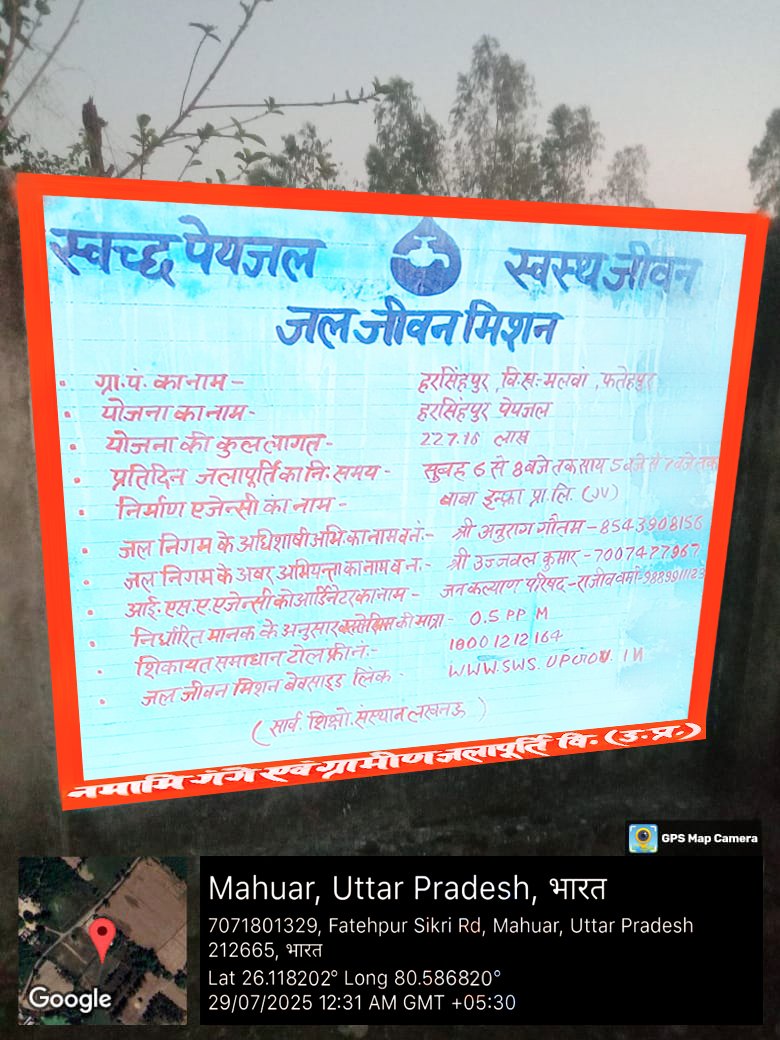 स्वच्छ पेयजल स्वस्थ जीवन
जल जीवन मिशन
ग्रा.पं. का नाम - हरसिंहपुर, वि.ख.-मलवां, फतेहपुर
योजना का नाम- हरसिंहपुर पेयजल
योजना की कुल लागत- 227.16 लाख
प्रतिदिन जलापूर्ति का नि. समय - सुबह 6 से 8 बजे तक साय 5 बजे से 7 बजे तक
निर्माण एजेन्सी का नाम - बाबा इन्फ्रा प्रा.लि. (JV)
जल निगम के अधिशाषी अभि. का नाम व नं.- श्री अनुराग गौतम - 8543908156
जल निगम के अवर अभियन्ता का नाम व न.- श्री उज्जवल कुमार - 7007477967
आई.एस.ए. एजेन्सी कोआर्डिनेटर का नाम - जन कल्याण परिषद - राजीव वर्मा-9889911123
निर्धारित मानक के अनुसार की मात्रा - 0.5 PPM
शिकायत समाधान टोल फ्री नं.- 18001212164
जल जीवन मिशन वेबसाइड लिंक - WWW.SWS.UPGOV.IN
(सार्व. शिक्षो. संस्थान लखनऊ)
नमामि गंगे एवं ग्रामीण जलापूर्ति वि. (उ.प्र.)
GPS Map Camera
Mahuar, Uttar Pradesh, भारत
7071801329, Fatehpur Sikri Rd, Mahuar, Uttar Pradesh
212665, भारत
Lat 26.118202° Long 80.586820°
29/07/2025 12:31 AM GMT +05:30
Google